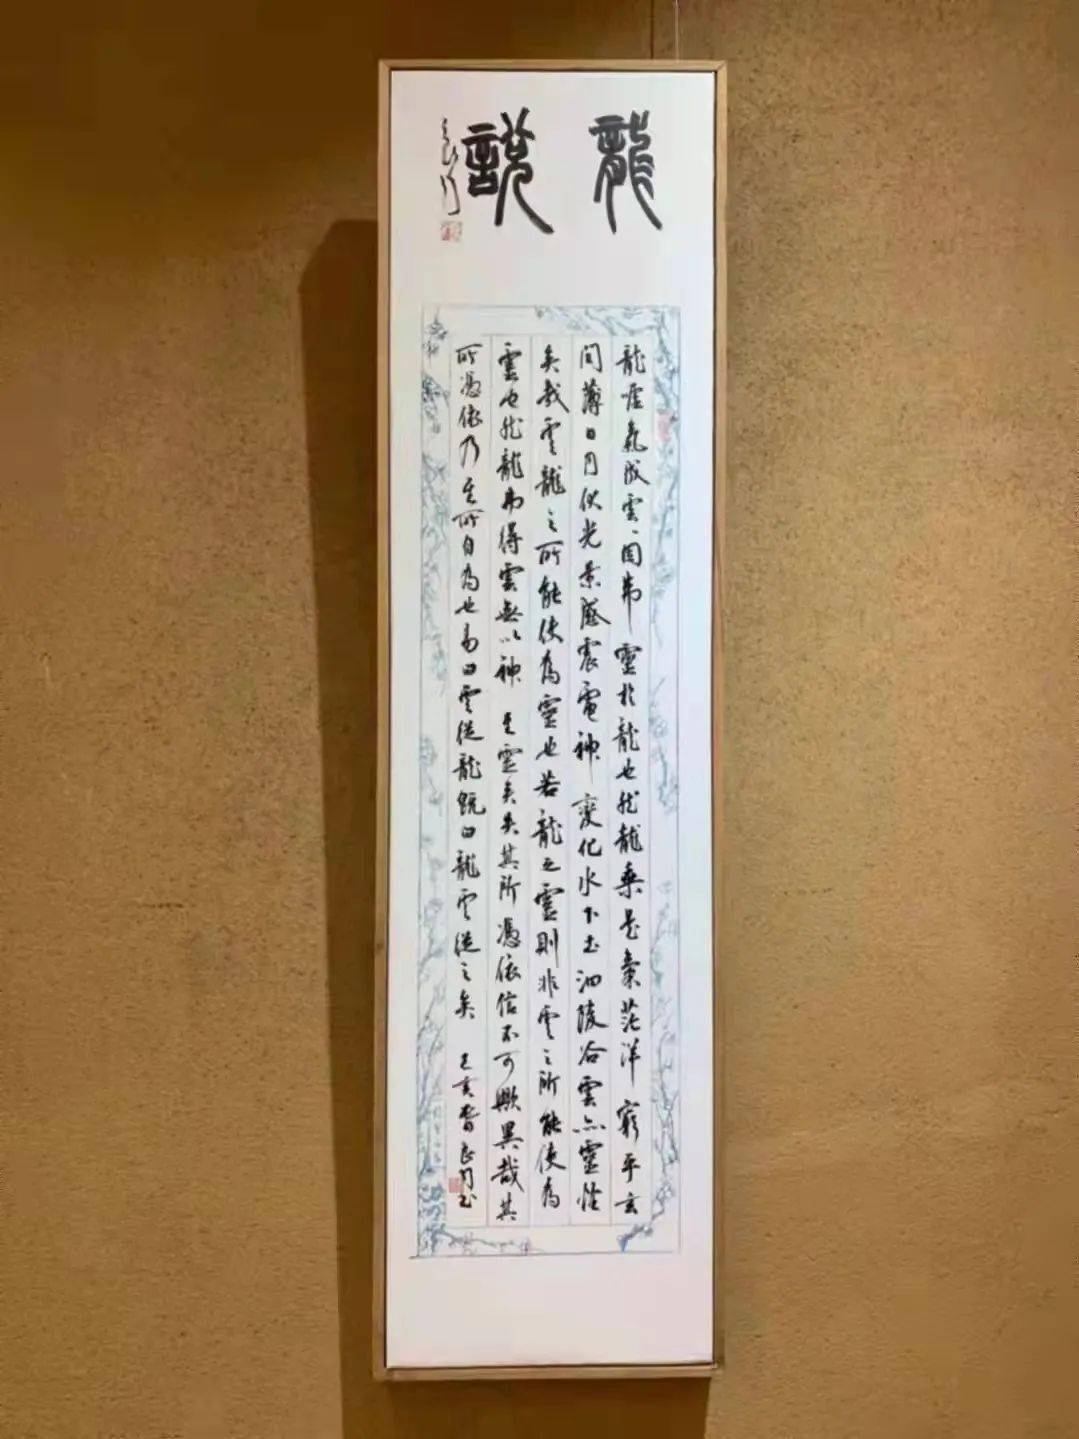 龍說
龍嘘氣成雲、固弗靈於龍也然龍乘是氣茫洋窮乎玄
間薄日月伏光景感震電神變化水下土汩陵谷雲亦靈怪
矣哉雲龍之所能使為靈也若龍之靈則非雲之所能使為
靈也然龍弗得雲無以神其靈矣失其所憑依信不可歟異哉其
所憑依乃其所自為也易曰雲從龍既曰龍雲從之矣 己亥春